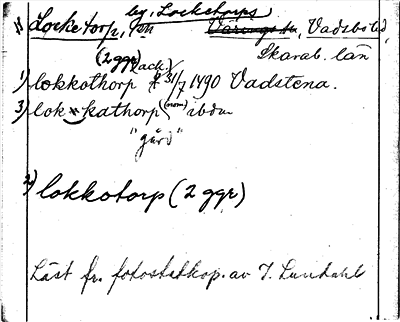 by: Locketorps
Locketorp, Vadsbo hd,
Skarab. län
(2 ggr) (ack.)
1) lokkothorp 31/7 1490 Vadstena.
3) lok kathorp (nom) ibdm
"gärd"
2) lokkotorp (2 ggr)
Läst fr. fotostatkop. av I. Lundahl